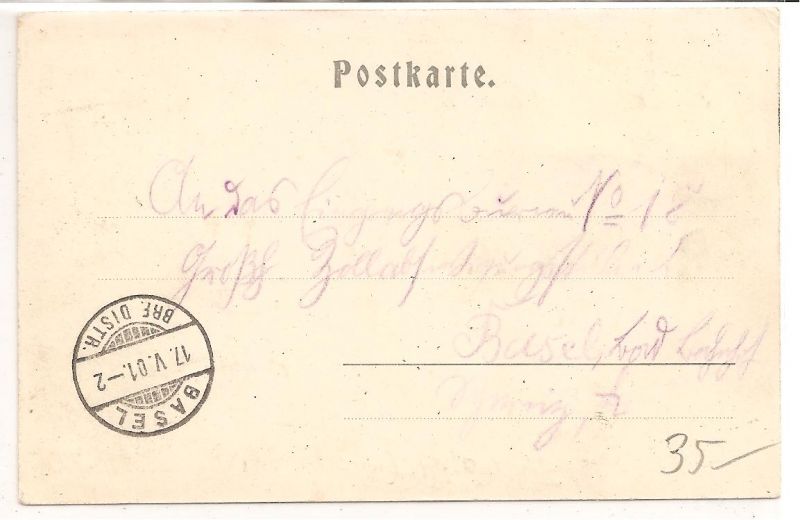 Postkarte.
An das Eingangsbureau No 18
Großh. Zollabfertigungsstelle
Basel, bad. Bahnhof
BASEL
17.V.01.-2
BRF. DISTR.
35-